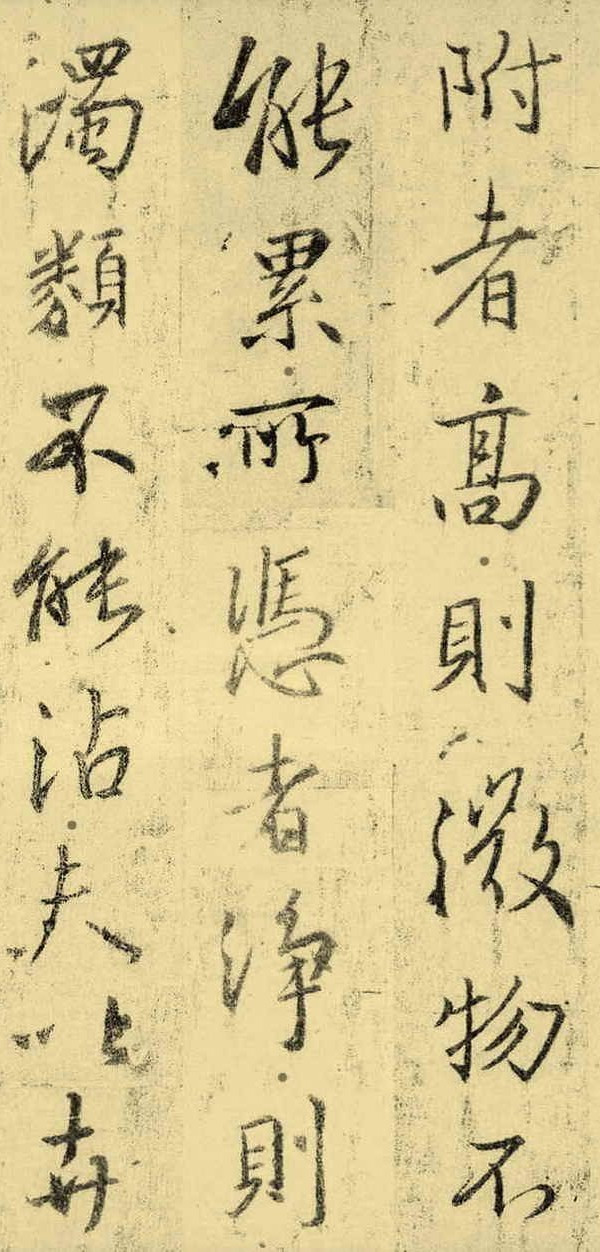 附者高則微物不
能累所憑者淨則
濁類不能沾夫以卉